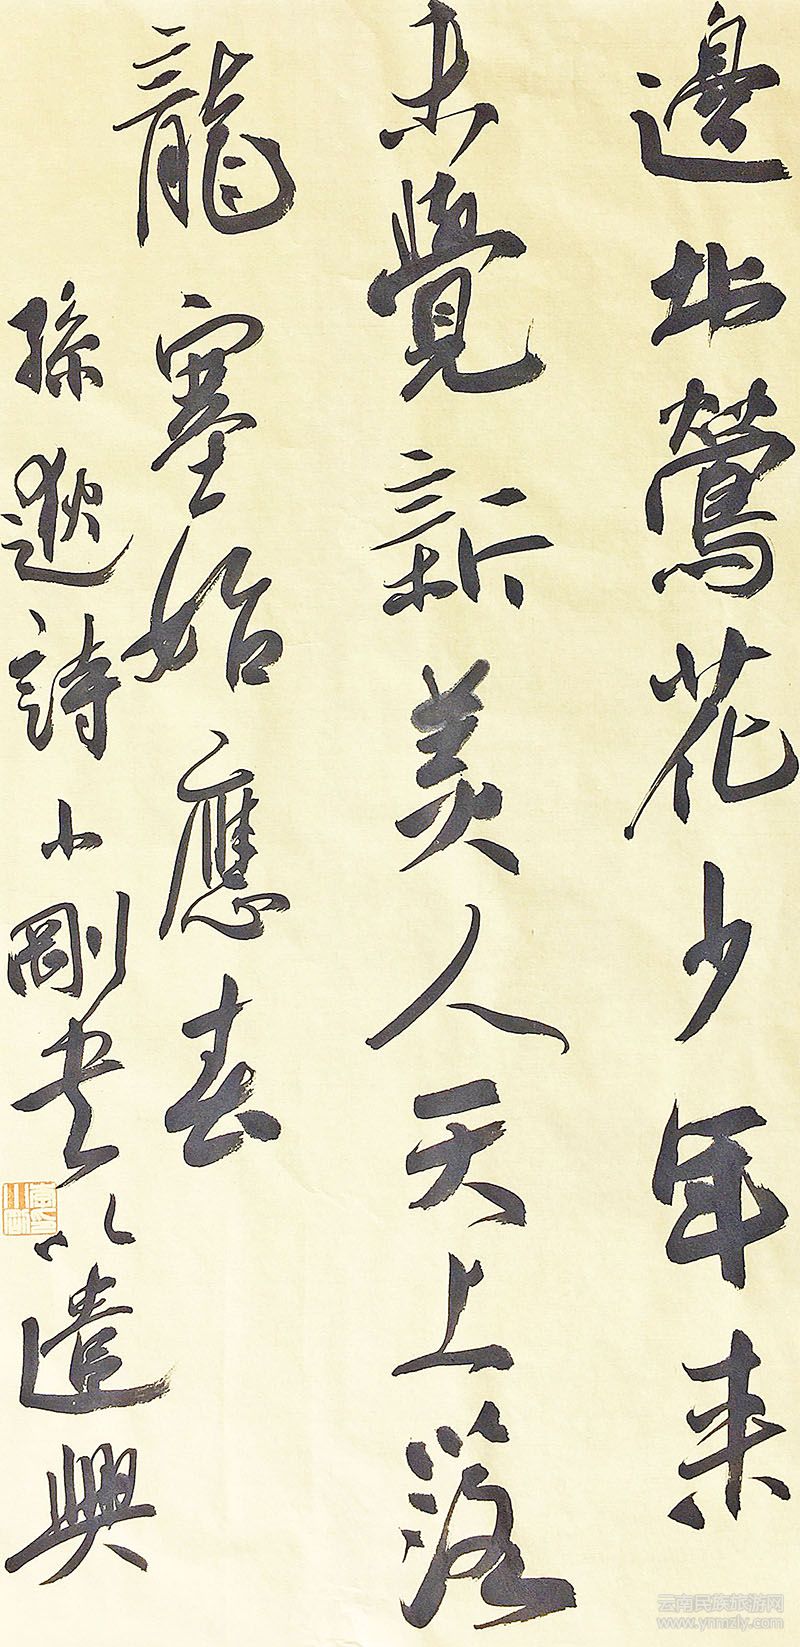 邊地鶯花少年来
未覺新美人天上落
龍塞始應春
孫逖詩小剛书以遣興
云南民族旅游网
www.ynmzly.com